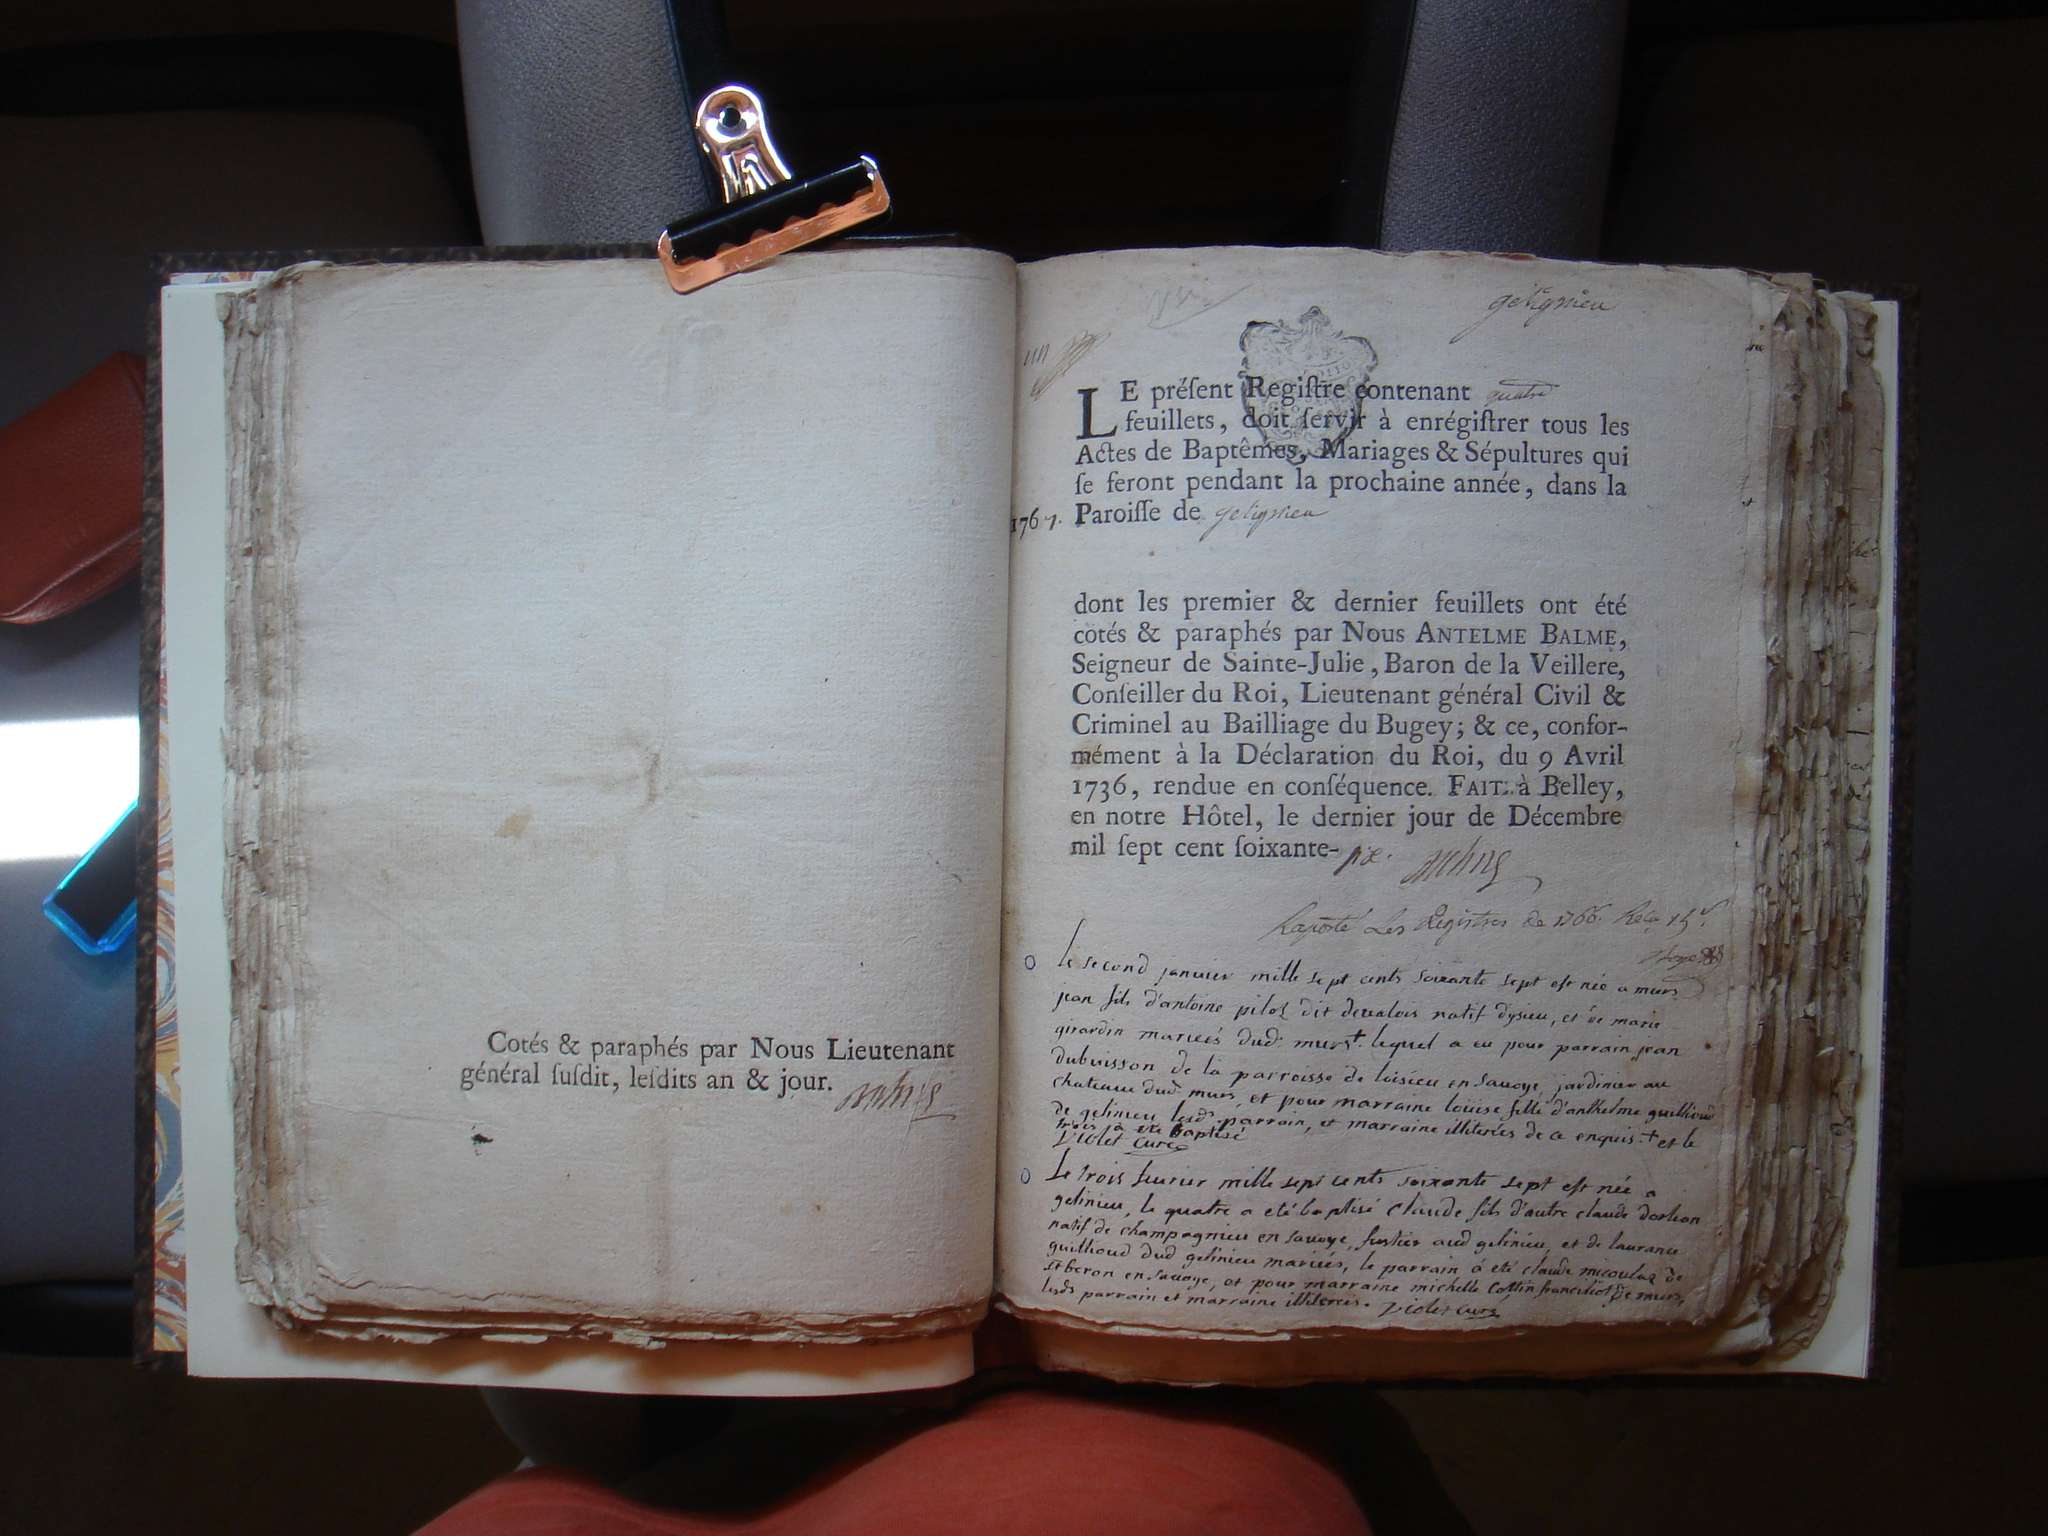 Cotés & paraphés par Nous Lieutenant
général ſuſdit, leſdits an & jour.
gelignieu
un
LE préſent Regiſtre contenant quatre
feuillets, doit ſervir à enrégiſtrer tous les
Actes de Baptêmes, Mariages & Sépultures qui
ſe feront pendant la prochaine année, dans la
1767. Paroiſſe de gelignieu
dont les premier & dernier feuillets ont été
cotés & paraphés par Nous ANTELME BALME,
Seigneur de Sainte-Julie, Baron de la Veillere,
Conſeiller du Roi, Lieutenant général Civil &
Criminel au Bailliage du Bugey; & ce, confor-
mément à la Déclaration du Roi, du 9 Avril
1736, rendue en conſéquence. FAIT à Belley,
en notre Hôtel, le dernier jour de Décembre
mil ſept cent ſoixante-ſix.
Raporté Les Registres de 1766. Reçu 15 ſ
le second janvier mille sept cents soixante sept est née a murs
jean fils d'antoine pilot dit devalois natif dysieu, et de marie
girardin mariées dud: murs + lequel a eu pour parrain jean
dubuisson de la parroisse de loisieu en savoye, jardinier au
chateau dud: murs, et pour marraine loüise fille d'anthelme guillioud
de gelinieu lesds. parrain, et marraine illiterées de ce enquis. + et le
trois a ete baptisé
Violet curé
Le trois fevrier mille sept cents soixante sept est née a
gelinieu, le quatre a eté baptisé claude fils d'autre claude dorlian
natif de champagnieu en savoye, fustier aud gelinieu, et de laurance
guillioud dud gelinieu mariés, le parrain a eté claude micoulaz de
st beron en savoye, et pour marraine michelle Collin franciliot de murs,
lesds parrain et marraine illiterées. Violet curé